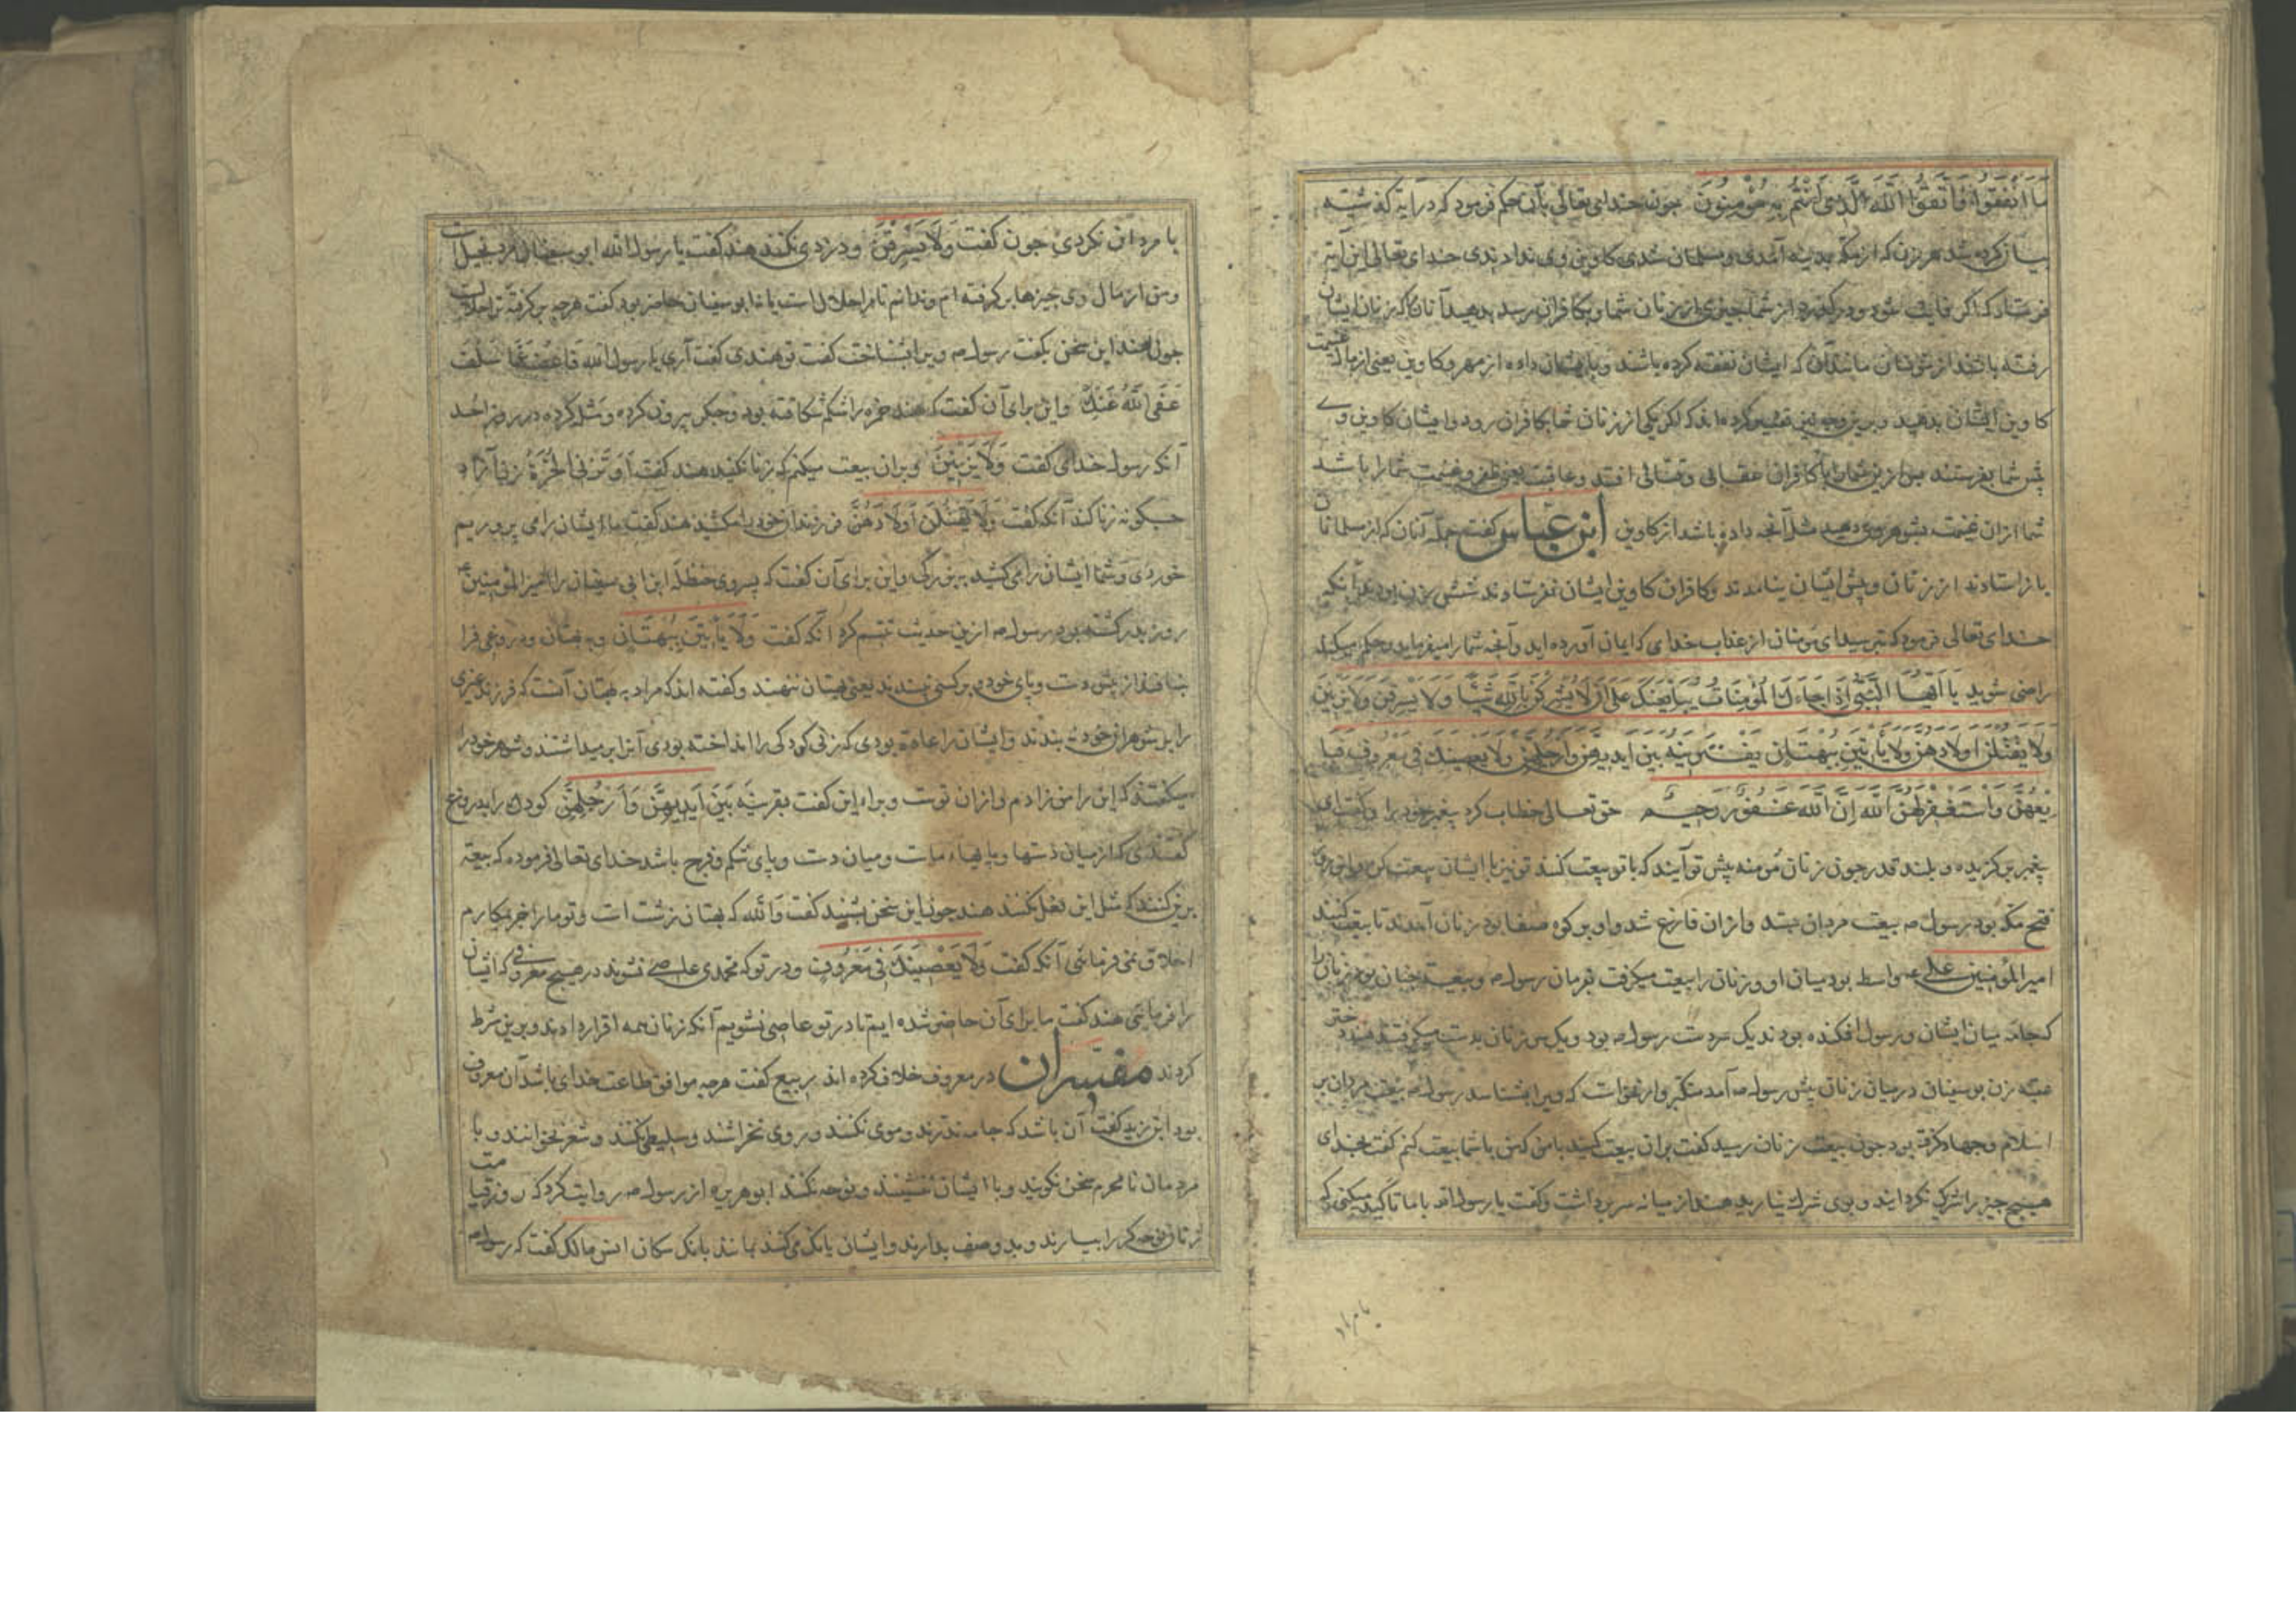 ما انفقوا واتقوا الله الذی انتم به مؤمنون جون خدای تعالی بآن حکم فرمود که در آیه کذشته
بیان کرده شد هر زن که از مکه بمدینه آمدی و مسلمان شدی کاوین وی ندادندی خدای تعالی این آیه
فرستاد که اکر فایت شود و درکذرد از شما جیزی از زنان شما و بکافران رسد بدهید آنان را که زنان ایشان
رفته باشند از مؤمنان مانند آن که ایشان نفقه کرده باشند و بایشان داده از مهر و کاوین یعنی از مال غنیمت
کاوین ایشان بدهید و برین وجه نیز تفسیر کرده اند که اکر یکی از زنان شما بکافران رود و ایشان کاوین وی
پیش شما بفرستند پس ازین شما را با کافران عقابی و قتالی افتد و عاقبت یعنی ظفر و غنیمت شما را باشد
شما از ان غنیمت بشوهر وی دهید مثل آنجه داده باشد از کاوین ابن عباس کفت جمله آنان که از مسلمانان
باز استادند از زنان و پیش ایشان نیامدند و کافران کاوین ایشان نفرستادند شش زن بودند آنکه
خدای تعالی فرمود که بترسید ای مؤمنان از عذاب خدای که ایمان آورده اید و آنجه شما را میفرماید و حکم میکند
راضی شوید یا ایها النبی اذا جاءک المؤمنات یبایعنک علی ان لا یشرکن بالله شیئا ولا یسرقن ولا یزنین
ولا یقتلن اولادهن ولا یأتین ببهتان یفترینه بین ایدیهن وارجلهن ولا یعصینک فی معروف فبا
یعهن واستغفر لهن الله ان الله غفور رحیم حق تعالی خطاب کرد پیغمبر خود را و کفت ای
پیغمبر برکزیده و بلند قدر جون زنان مؤمنه پیش تو آیند که با تو بیعت کنند تو نیز با ایشان بیعت کن و این روز
فتح مکه بود رسول صه بیعت مردان بستد و ازان فارغ شد و او بر کوه صفا بود زنان آمدند تا بیعت کنند
امیر المؤمنین علی عه واسط بود میان او و زنان را بیعت میکرفت بفرمان رسول صه و بیعت جنان بود زنان را
که جامه میان ایشان و رسول افکنده بودند یک سر دست رسول صه بود و یک سر زنان بدست میکرفتند هند دختر
عتبه زن بوسفیان در میان زنان پیش رسول صه آمد متنکر وار نخواست که ویرا بشناسد رسول صه بیعت مردان بر
اسلام و جهاد کرفته بود جون بیعت زنان رسید کفت بران بیعت کنید با من کمن با شما بیعت کنم کفت بخدای
هیج جیز را شرک نکردانید و بوی شرک نیارید هند از میانه سر برداشت و کفت یا رسول الله با ما تاکید میکنی که
با مرداد
با مردان نکردی جون کفت ولا یسرقن و دزدی نکنند هند کفت یا رسول الله ابو سفیان مرد بخیل است
و من از مال وی جیزها بر کرفته ام و ندانم تا مرا حلال است یا نا ابو سفیان حاضر بود کفت هر جه بر کرفته ترا حلالست
جون هند این سخن بکفت رسول صه ویرا بشناخت کفت تو هندی کفت آری یا رسول الله فاعف عما سلف
عفی الله عنک و این برای آن کفت که هند حمزه را شکم شکافته بود و جکر بیرون کرده و مثل کرده در روز احد
آنکه رسول خدای کفت ولا یزنین و بران بیعت میکنم که زنا نکنید هند کفت او تزنی الحرة زنی آزاد
جکونه زنا کند آنکه کفت ولا یقتلن اولادهن فرزندان خود را مکشید هند کفت ما ایشان را می پروریم
خوردی و شما ایشان را می کشید ببزرکی و این برای آن کفت که پسر وی حنظلة ابن ابی سفیان را امیر المؤمنین عه
روز بدر کشته بود رسول صه ازین حدیث تبسم کرد آنکه کفت ولا یأتین ببهتان و بهتان و دروغی فرا
نبافند از پیش دست و پای خود و بر کسی نبندند یعنی بهتان ننهند و کفته اند که مراد به بهتان آنست که فرزند غیری
را بر شوهران خود نه بندند و ایشان را عادت بودی که زنی کودکی را انداخته بودی آنرا بر میداشتند و شوهر خود را
میکفتند که این را من زادم و از ان توست و برای این کفت یفترینه بین ایدیهن وارجلهن کودک را بدروغ
کفتندی که از میان دستها و پایهاء مات و میان دست و پای شکم و فرج باشد خدای تعالی فرموده که بیعت
برین کنند که مثل این فعل نکنند هند جون این سخن بشنید کفت والله که بهتان زشت است و تو ما را جز بمکارم
اخلاق نمی فرمائی آنکه کفت ولا یعصینک فی معروف و در تو که محمدی عاصی نشوند در هیج معروفی که ایشان
را فرمائی هند کفت ما برای آن حاضر شده ایم تا در تو عاصی نشویم آنکه زنان همه اقرار دادند و برین شرط
کردند مفسران در معروف خلاف کرده اند ربیع کفت هرجه موافق طاعت خدای باشد آن معروف
بود ابن زید کفت آن باشد که جامه ندرند و موی نکنند و روی نخراشند و سلیطی نکنند و شعر نخوانند و با
مردمان نا محرم سخن نکویند و با ایشان ننشینند و نوحه نکنند ابو هریره از رسول صه روایت کرد که روز قیامت
زنان نوحه کر را بیارند و بدو صف بدارند و ایشان بانک می کنند مانند بانک سکان انس مالک کفت که رسول صه